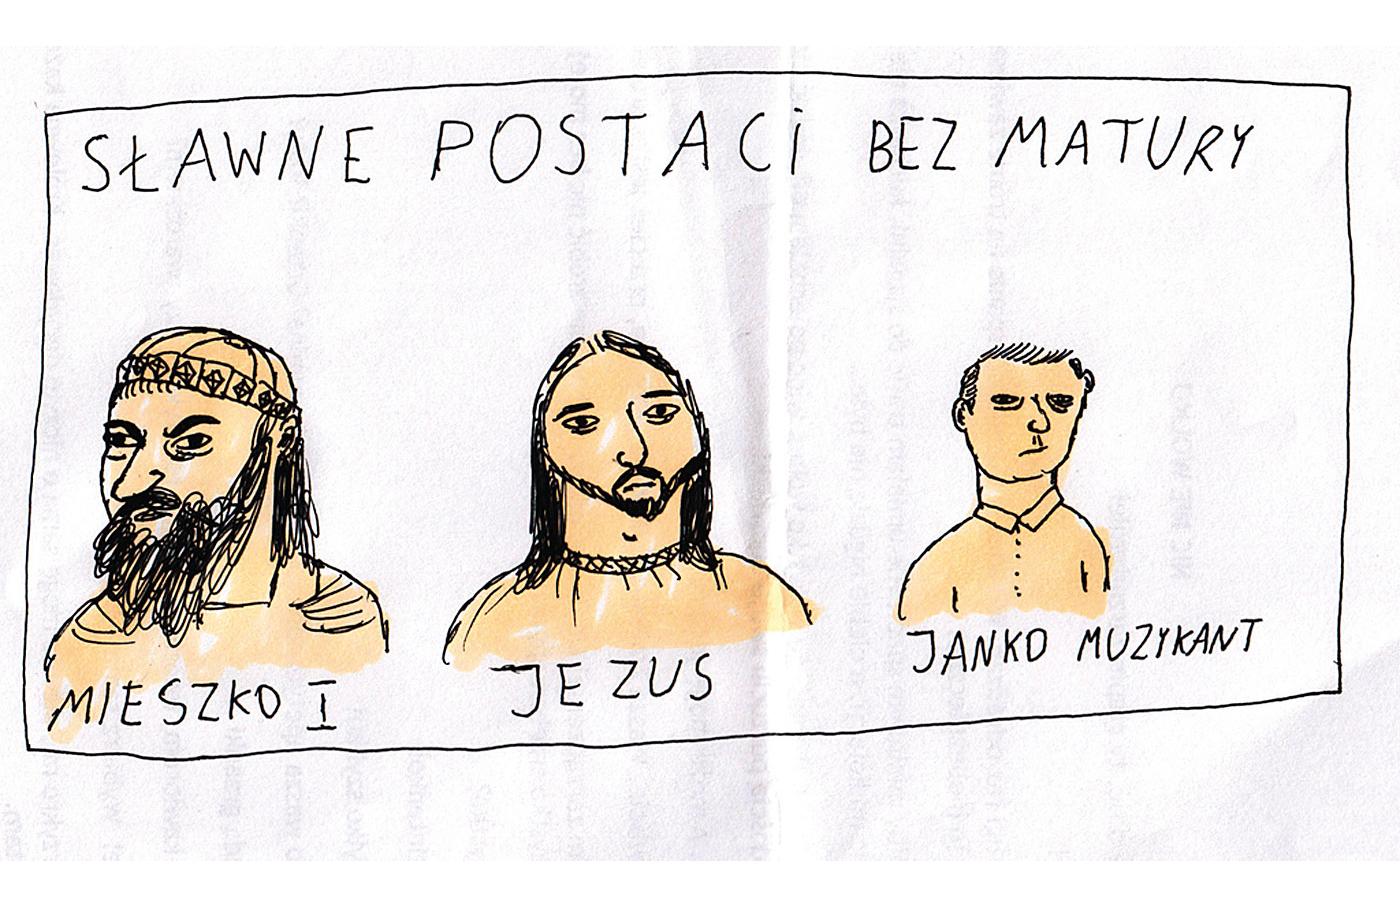 SŁAWNE POSTACi BEZ MATURY
MIESZKO I
JEZUS
JANKO MUZYKANT